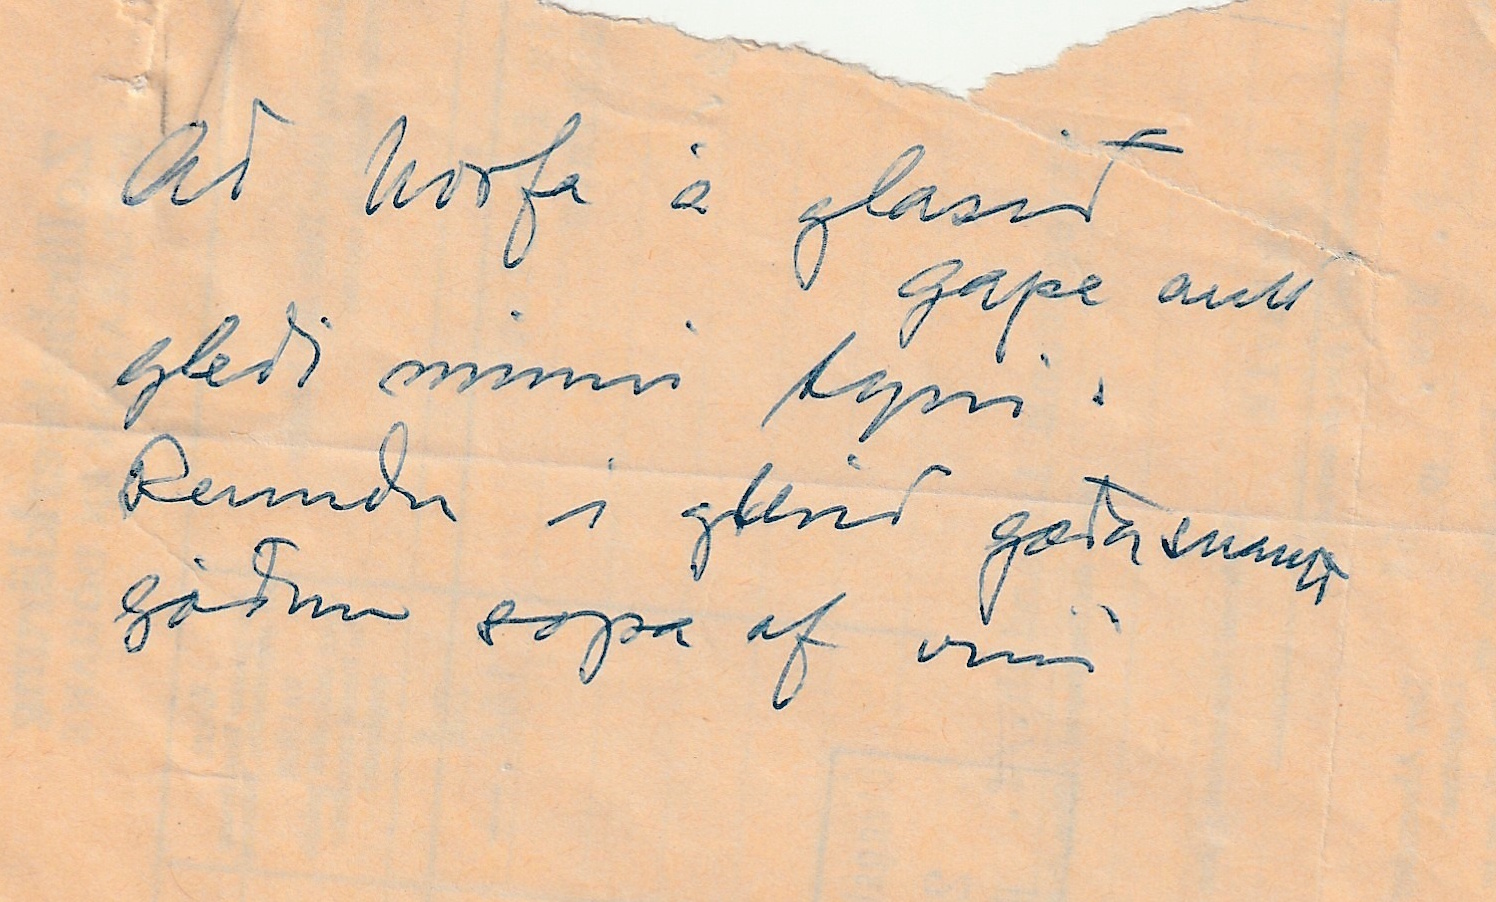 Að horfa á glasið
gapa autt
gleði minni týni.
Renndu í glasið góða snauð
góðum sopa af víni